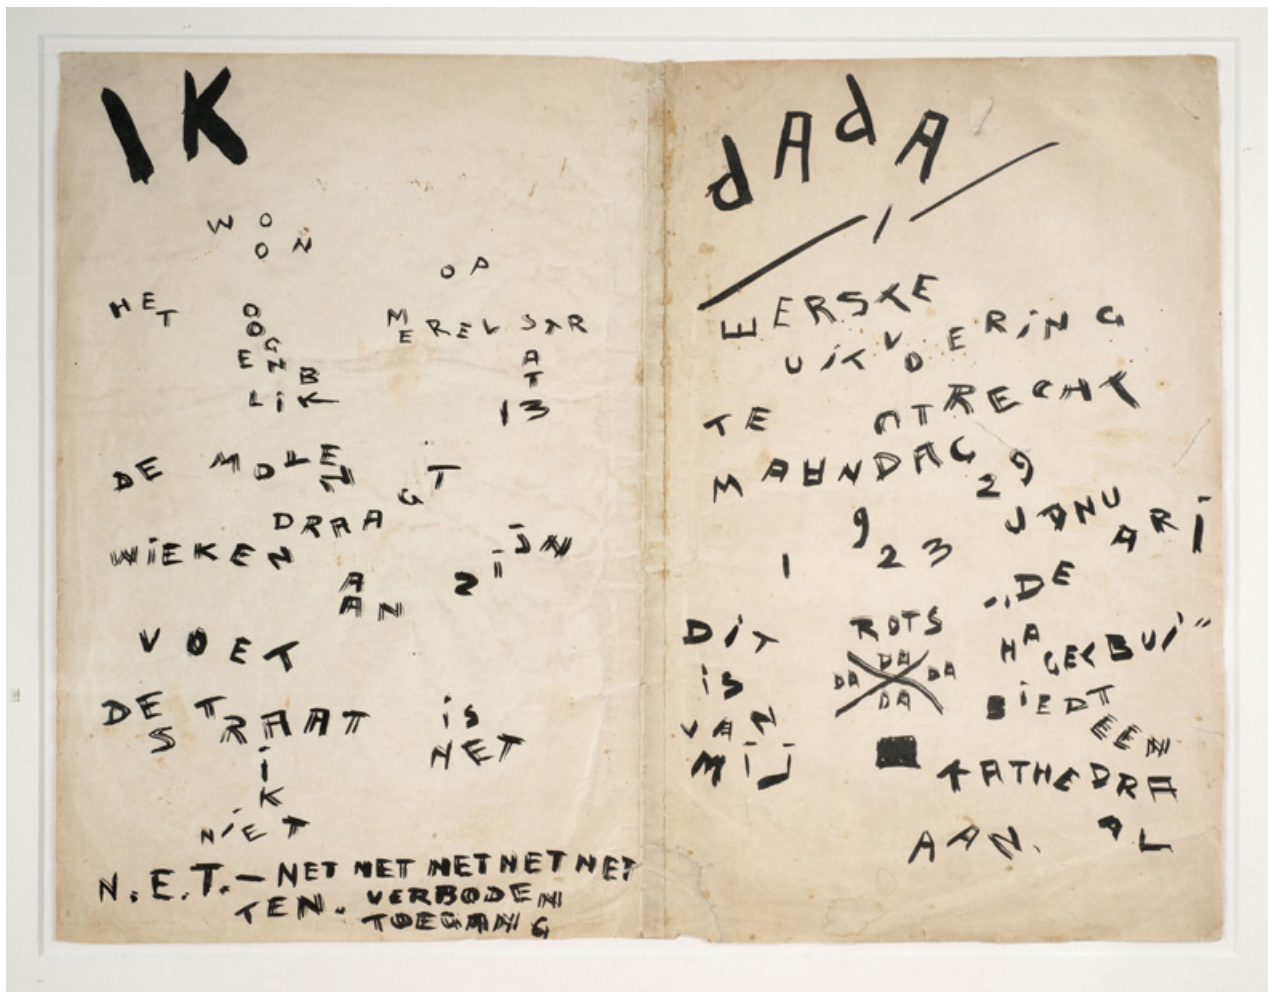 IK
WOON
OP
HET OOGENBLIK
MERELSTRAAT
13
DE MOLEN
DRAAGT
WIEKEN
AAN ZIJN
VOET
DE STRAAT IS
NET
IK
NIET
N.E.T.—NET NET NETNETNET
TEN. VERBODEN
TOEGANG
dAdA
EERSTE
UiTVOERiNG
TE UTRECHT
MAUNDAG 29
JANUARi
1923
DiT
iS
VAN
MiJ
ROTS
DA
DA DA
DA
„DE
HAGELBUi”
BiEDT
EEN
KATHEDRAAL
AAN.